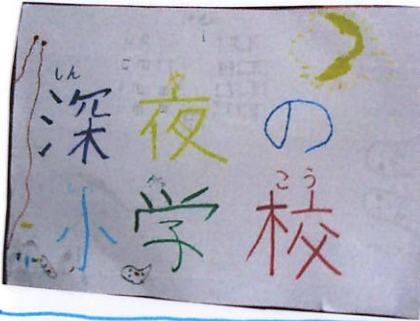 しん
深夜の
こう
小学校